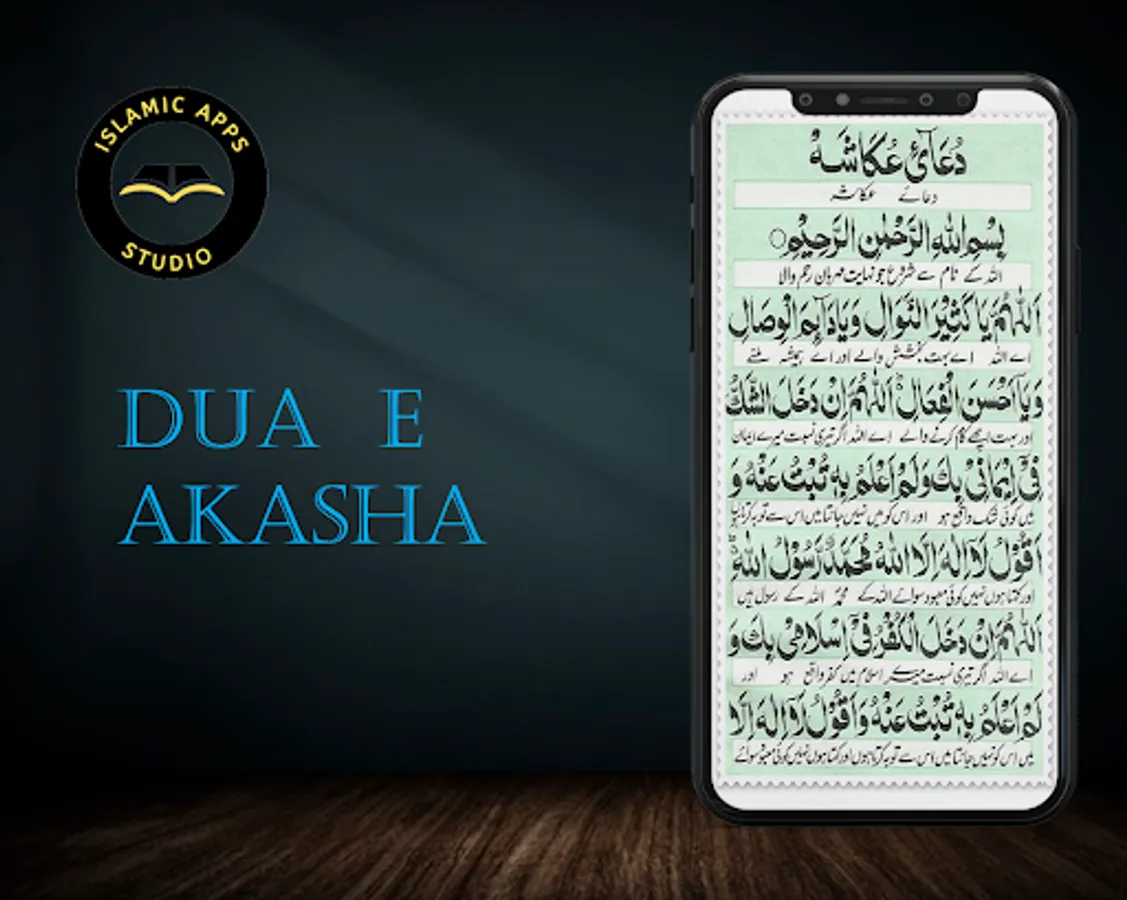 ISLAMIC APPS
STUDIO
DUA E
AKASHA
دُعَائے عُكَاشَہ
دعائے عکاشہ
بِسْمِ اللّٰهِ الرَّحْمٰنِ الرَّحِيْمِ
اللہ کے نام سے شروع جو نہایت مہربان رحم والا
اَللّٰهُمَّ يَا كَثِيْرَ النَّوَالِ وَيَا دَآئِمَ الْوِصَالِ
اے اللہ اے بہت بخشش والے اور اے ہمیشہ ملنے
وَيَآ اَحْسَنَ الْفِعَالِ اَللّٰهُمَّ اِنْ دَخَلَ الشَّكُّ
اور بہت اچھے کام کرنے والے اے اللہ اگر تیری نسبت میرے ایمان
فِيْٓ اِيْمَانِيْ بِكَ وَلَمْ اَعْلَمْ بِهٖ تُبْتُ عَنْهُ وَ
میں کوئی شک واقع ہو اور اس کو میں نہیں جانتا میں اس سے توبہ کرتا ہوں
اَقُوْلُ لَآ اِلٰهَ اِلَّا اللّٰهُ مُحَمَّدٌ رَّسُوْلُ اللّٰهِ
اور کہتا ہوں نہیں کوئی معبود سوائے اللہ کے محمدؐ اللہ کے رسول ہیں
اَللّٰهُمَّ اِنْ دَخَلَ الْكُفْرُ فِيْٓ اِسْلَامِيْ بِكَ وَ
اے اللہ اگر تیری نسبت میرے اسلام میں کفر واقع ہو اور
لَمْ اَعْلَمْ بِهٖ تُبْتُ عَنْهُ وَاَقُوْلُ لَآ اِلٰهَ اِلَّا
میں اس کو نہیں جانتا میں اس سے توبہ کرتا ہوں اور کہتا ہوں نہیں کوئی معبود سوائے